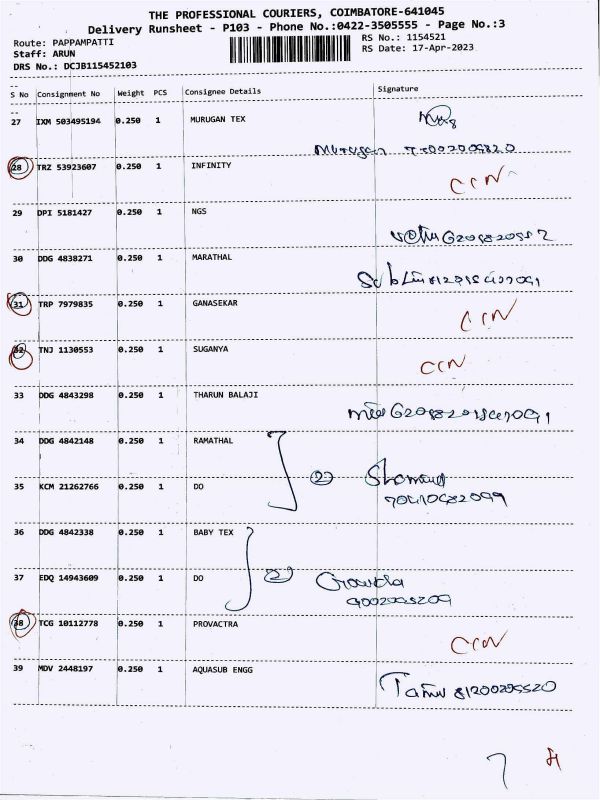 THE PROFESSIONAL COURIERS, COIMBATORE-641045
Delivery Runsheet - P103 - Phone No.:0422-3505555 - Page No.:3
Route: PAPPAMPATTI
Staff: ARUN
DRS No.: DCJB115452103
RS No.: 1154521
RS Date: 17-Apr-2023
S No Consignment No Weight PCS Consignee Details Signature
27 IXM 503495194 0.250 1 MURUGAN TEX
28 TRZ 53923607 0.250 1 INFINITY CCN
29 DPI 5181427 0.250 1 NGS
30 DDG 4838271 0.250 1 MARATHAL
31 TRP 7979835 0.250 1 GANASEKAR CCN
32 TNJ 1130553 0.250 1 SUGANYA CCN
33 DDG 4843298 0.250 1 THARUN BALAJI
34 DDG 4842148 0.250 1 RAMATHAL
35 KCM 21262766 0.250 1 DO 2
36 DDG 4842338 0.250 1 BABY TEX
37 EDQ 14943609 0.250 1 DO 2
38 TCG 10112778 0.250 1 PROVACTRA CCN
39 MDV 2448197 0.250 1 AQUASUB ENGG
7